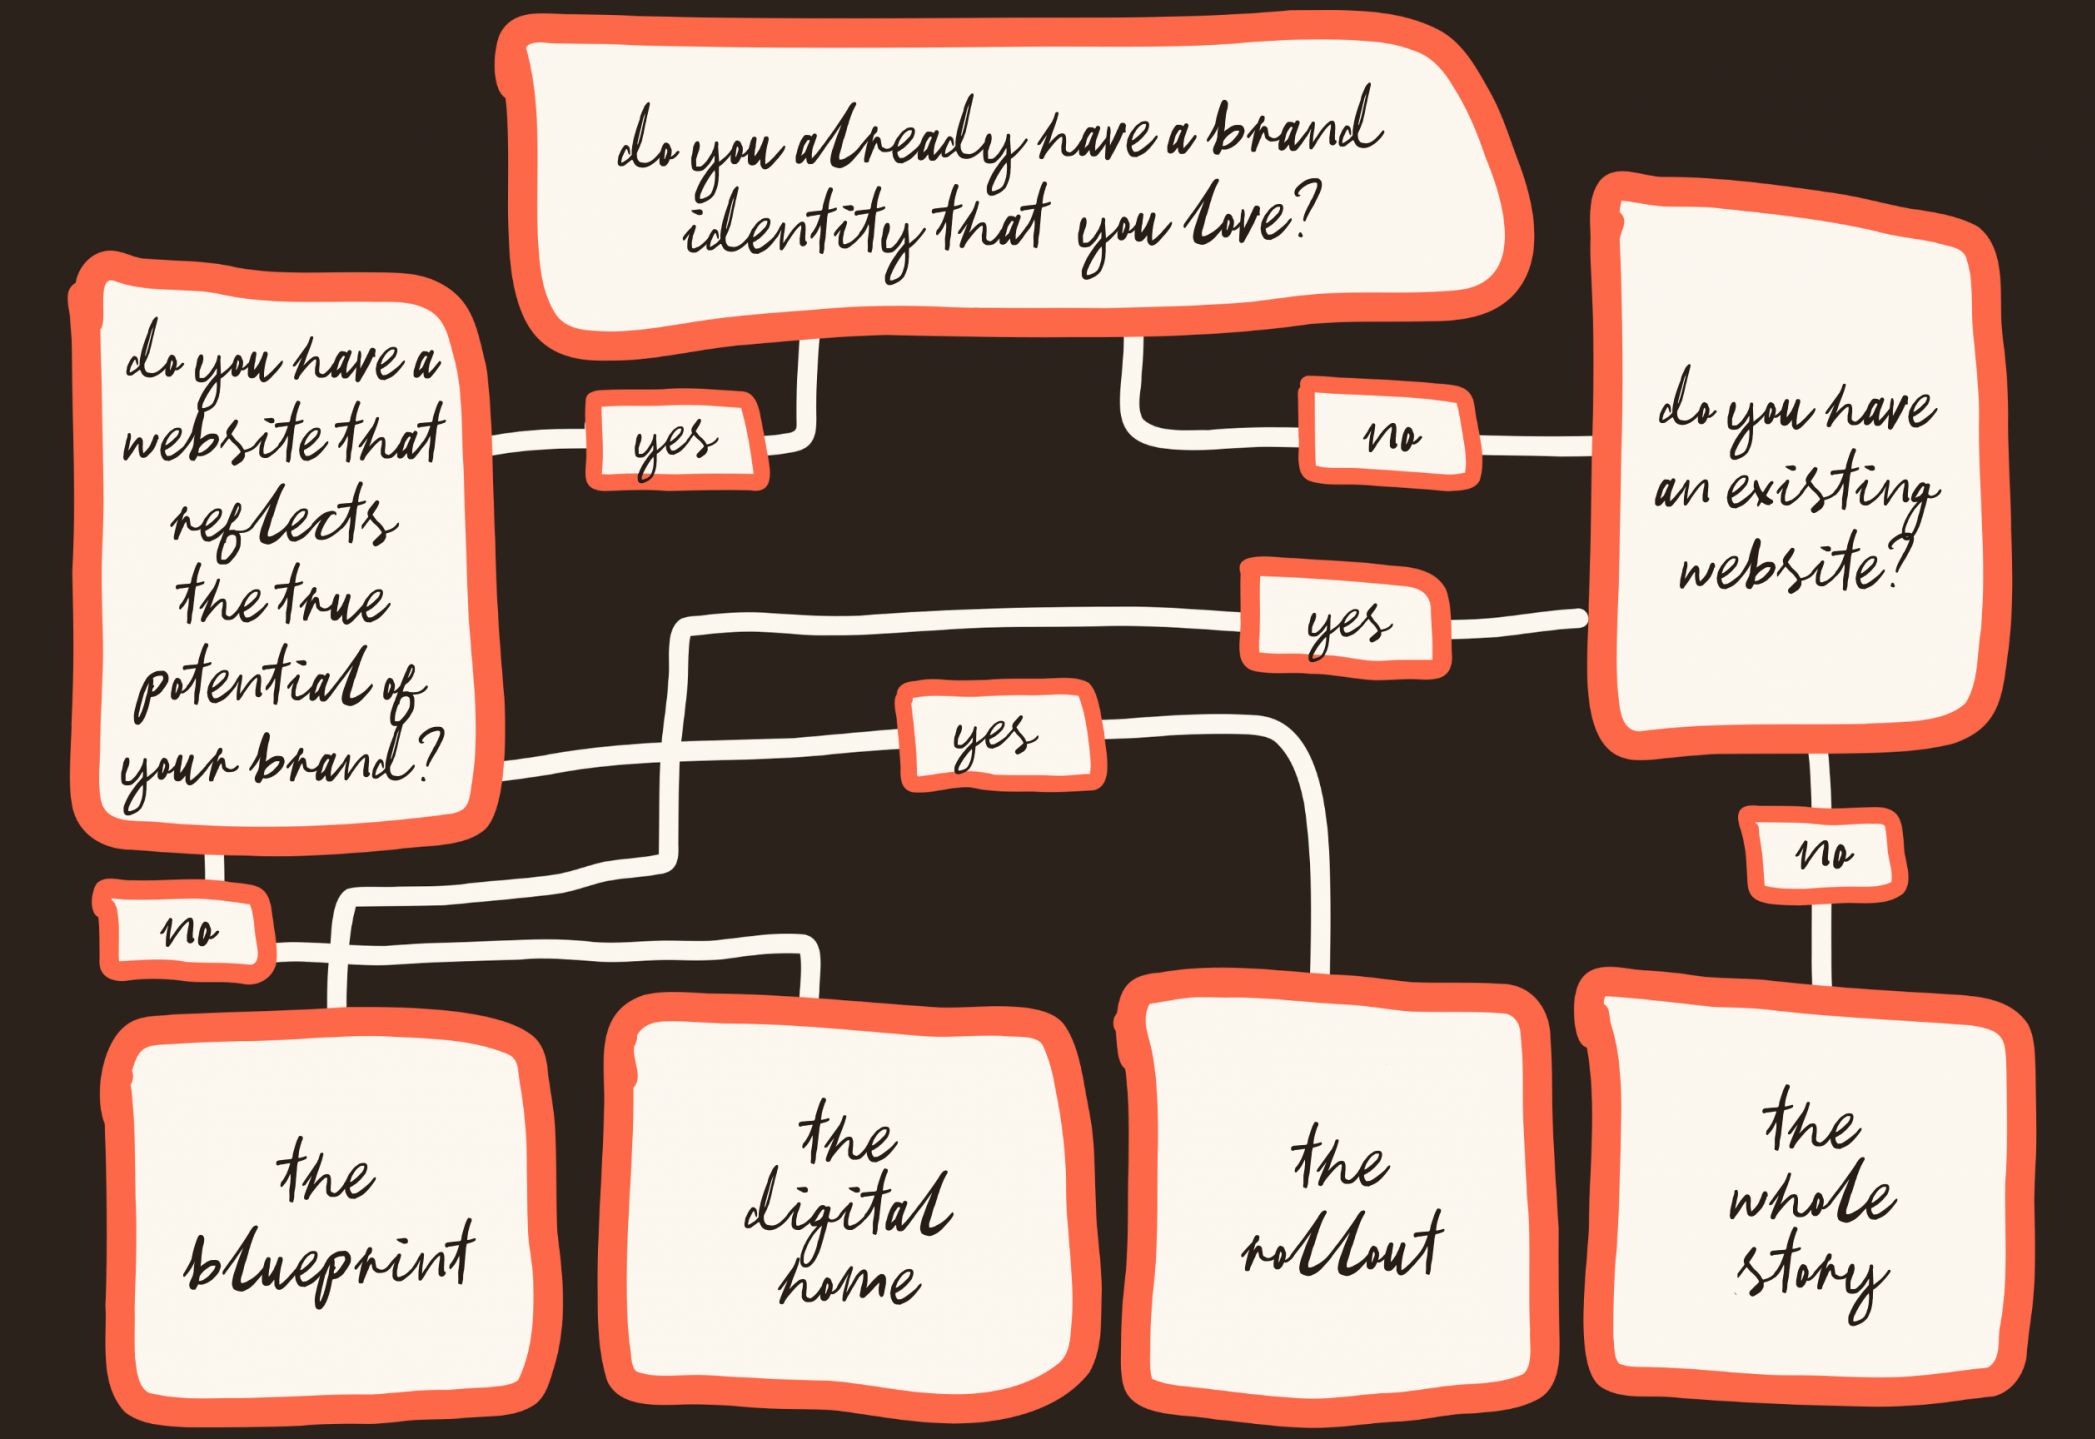 do you already have a brand
identity that you love?
do you have a
website that
reflects
the true
potential of
your brand?
yes
no
do you have
an existing
website?
yes
yes
no
no
the
blueprint
the
digital
home
the
rollout
the
whole
story